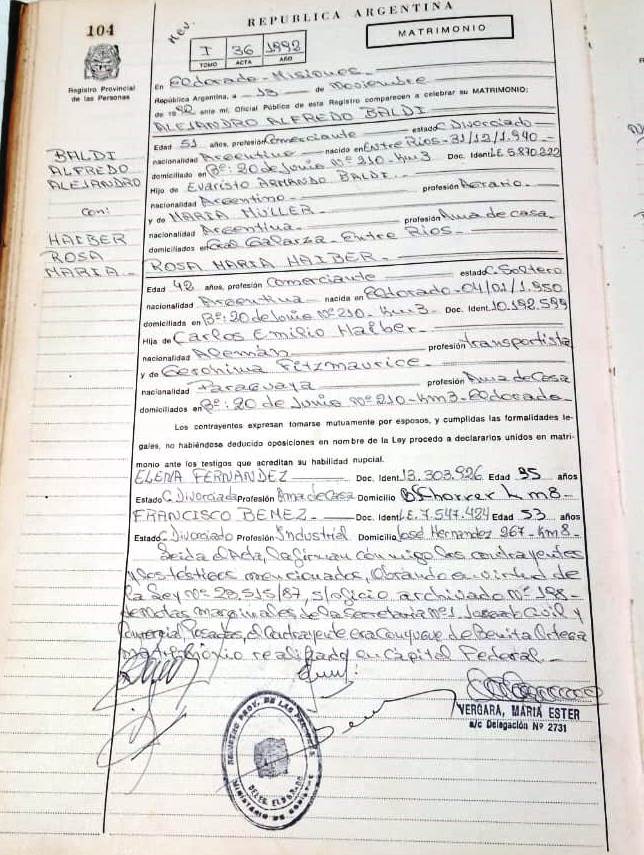 104
REPUBLICA ARGENTINA
MATRIMONIO
I 36 1992
TOMO ACTA AÑO
Registro Provincial
de las Personas
En Eldorado-Misiones
República Argentina, a 13 de Noviembre
de 1992 ante mí, Oficial Público de este Registro comparecen a celebrar su MATRIMONIO:
ALEJANDRO ALFREDO BALDI
Edad 51 años, profesión Comerciante estado C. Divorciado
nacionalidad Argentino nacido en Entre Rios-31/12/1.940-
domiciliado en Bº: 20 de Junio Nº 210-Km3 Doc. Ident. L.E 5.870.222
Hijo de Evaristo ARMANDO BALDI.
nacionalidad Argentino profesión Agrario.
y de MARIA MÜLLER
nacionalidad Argentina profesión Ama de casa
domiciliados en Gral Galarza-Entre Rios.
BALDI
ALFREDO
ALEJANDRO
con:
HAIBER
ROSA
MARIA
ROSA MARIA HAIBER
Edad 42 años, profesión Comerciante estado C. Soltera
nacionalidad Argentina nacida en Eldorado-04/01/1.950
domiciliada en Bº: 20 de Junio Nº 210-Km3 Doc. Ident. 10.192.599
Hija de Carlos Emilio Haiber
nacionalidad Alemán profesión transportista
y de Geronima Fitzmaurice
nacionalidad Paraguaya profesión Ama de Casa
domiciliados en Bº: 20 de Junio Nº 210-Km3-Eldorado
Los contrayentes expresan tomarse mutuamente por esposos, y cumplidas las formalidades le-
gales, no habiéndose deducido oposiciones en nombre de la Ley procedo a declararlos unidos en matri-
monio ante los testigos que acreditan su habilidad nupcial.
ELENA FERNANDEZ Doc. Ident. 13.303.926 Edad 35 años
Estado C. Divorciada Profesión Ama de Casa Domicilio km8-
FRANCISCO BENEZ Doc. Ident. L.E. 7.547.424 Edad 53 años
Estado C. Divorciado Profesión Industrial Domicilio José Hernandez 267-Km8-
Leida el Acta, la firman conmigo los contrayentes
y los testigos mencionados, Obrando en virtud de
la Ley Nº 23.515/87, s/oficio archivado Nº 198-
de Notas marginales de la Secretaria Nº1 Juzgado Civil y
Comercial, Posadas, el Contrayente era Conyuge de Benita Ortega
matrimonio realizado en Capital Federal
VERGARA, MARIA ESTER
a/c Delegación Nº 2731
REGISTRO PROV. DE LAS PERSONAS
DELEG. ELDORADO
MINISTERIO DE GOBIERNO